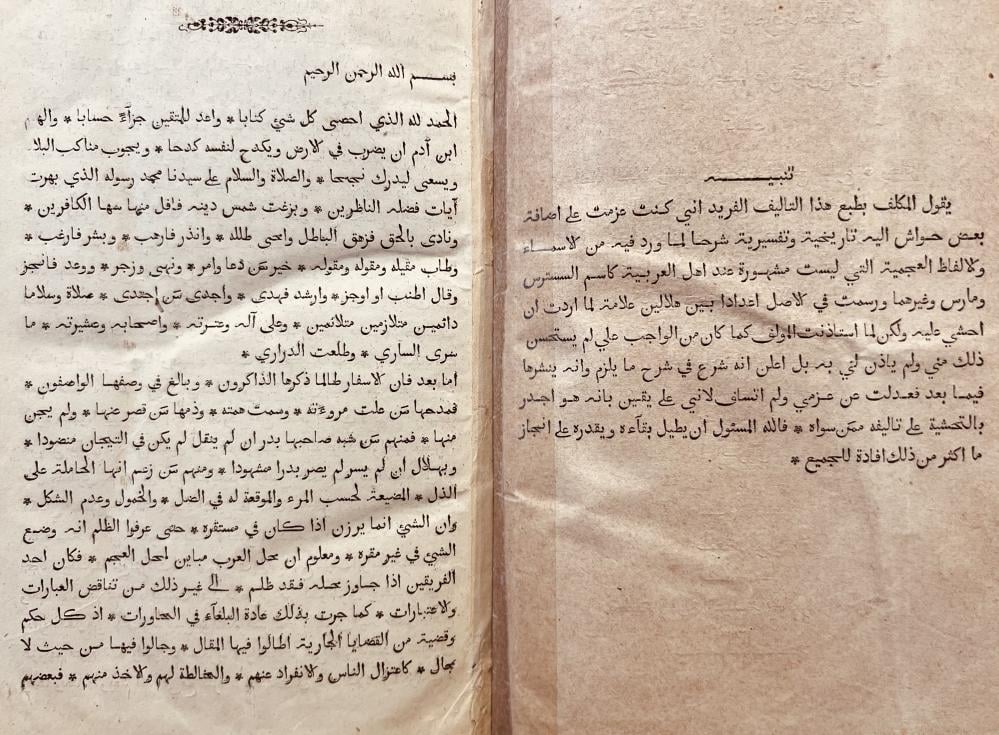 تنبيه
يقول المكلف بطبع هذا التاليف الفريد انني كنت عزمت على اضافة
بعض حواش اليه تاريخية وتفسيرية شرحا لما ورد فيه من لاسماء
ولالفاظ العجمية التي ليست مشهورة عند اهل العربية كاسم السسترس
ومارس وغيرهما ورسمت في لاصل اعدادا بين هلالين علامة لما اردت ان
احشي عليه ولكن لما استاذنت المولف كما كان من الواجب علي لم يستحسن
ذلك مني ولم ياذن لي به بل اعلن انه شرع في شرح ما يلزم وانه ينشرها
فيما بعد فعدلت عن عزمي ولم اتساف لانني على يقين بانه هو اجدر
بالتحشية على تاليفه ممن سواه * فالله المسئول ان يطيل بقآءه ويقدره على انجاز
ما اكثر من ذلك افادة للجميع *
بسم الله الرحمن الرحيم
الحمد لله الذي احصى كل شيئ كتابا * واعد للمتقين جزآءً حسابا * والهم
ابن آدم ان يضرب في لارض ويكدح لنفسه كدحا * ويجوب مناكب البلا
ويسعى ليدرك نجحا * والصلاة والسلام على سيدنا محمد رسوله الذي بهرت
آيات فضله الناظرين * وبزغت شمس دينه فافل منها سها الكافرين *
ونادى بالحق فزهق الباطل وامحى ظلله * وانذر فارهب * وبشر فارغب *
وطاب مقيله ومقوله ومقوله * خير من دعا وامر * ونهى وزجر * ووعد فانجز
وقال اطنب او اوجز * وارشد فهدى * واجدى من اجتدى * صلاة وسلاما
دائمين متلازمين متلائمين * وعلى آله وعترته * واصحابه وعشيرته * ما
سرى الساري * وطلعت الدراري *
اما بعد فان لاسفار طالما ذكرها الذاكرون * وبالغ في وصفها الواصفون *
فمدحها من علت مروءته * وسمت همته * وذمها من قصر عنها * ولم يجن
منها * فمنهم من شبه صاحبها بدر ان لم ينقل لم يكن في التيجان منضودا *
وبهلال ان لم يسر لم يصر بدرا مشهودا * ومنهم من زعم انها الحاملة على
الذل * المضيعة لحسب المرء والموقعة له في الضل * والخمول وعدم الشكل *
وان الشيئ انما يرزن اذا كان في مستقره * حتى عرفوا الظلم انه وضع
الشيئ في غير مقره * ومعلوم ان محل العرب مباين لمحل العجم * فكان احد
الفريقين اذا جاوز محله فقد ظلم * الى غير ذلك من تناقض العبارات
ولاعتبارات * كما جرت بذلك عادة البلغآء في المحاورات * اذ كل حكم
وقضية من القضايا الجارية اطالوا فيها المقال * وجالوا فيها من حيث لا
مجال * كاعتزال الناس ولانفراد عنهم * والمخالطة لهم ولاخذ منهم * فبعضهم